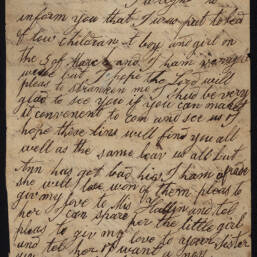 inform you that I was put to bed
of tow children t boy and girl on
the 3 of March and I ham
but I hope the Lord will
pleas to stranken me I shud be very
glad to see you if you can make
it convenent to com and see us I
hope these lins well find you all
well as the same leav us all but
Ann has got bad
she will lose won of them pleas to
give my love to Mis and tel
her I can spare her the little girl
pleas to giv my love to your Sister
and tel her I want a